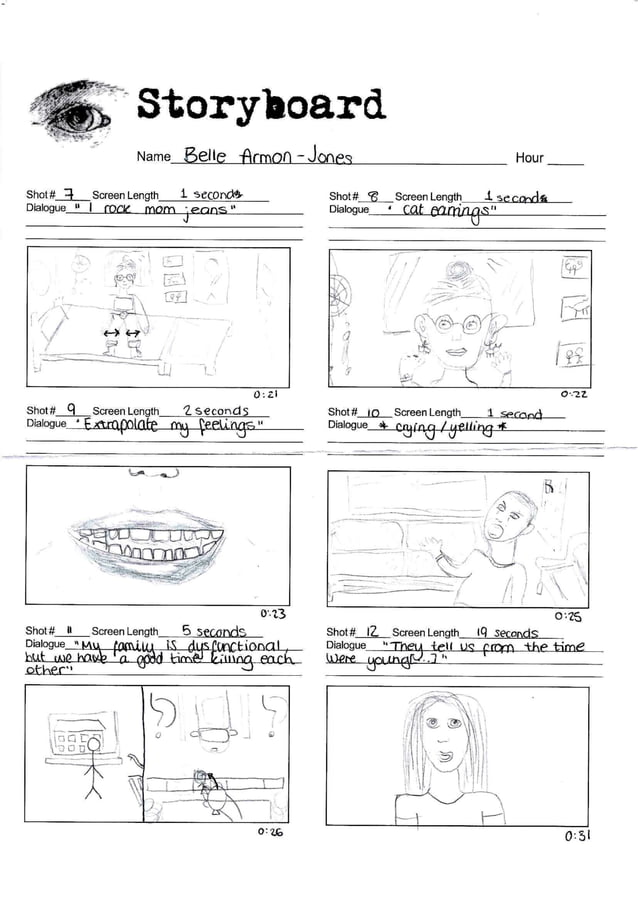 Storyboard
Name Belle Armon-Jones Hour
Shot# 7 Screen Length 1 seconds
Dialogue " I rock mom jeans"
0:21
Shot# 8 Screen Length 1 seconds
Dialogue " cat earrings"
0:22
Shot# 9 Screen Length 2 seconds
Dialogue "Extrapolate my feelings"
0:23
Shot# 10 Screen Length 1 second
Dialogue * crying / yelling *
0:25
Shot# 11 Screen Length 5 seconds
Dialogue "My family is dysfunctional,
but we have a good time killing each
other"
0:26
Shot# 12 Screen Length 19 seconds
Dialogue "They tell us from the time
were young[...]"
0:31